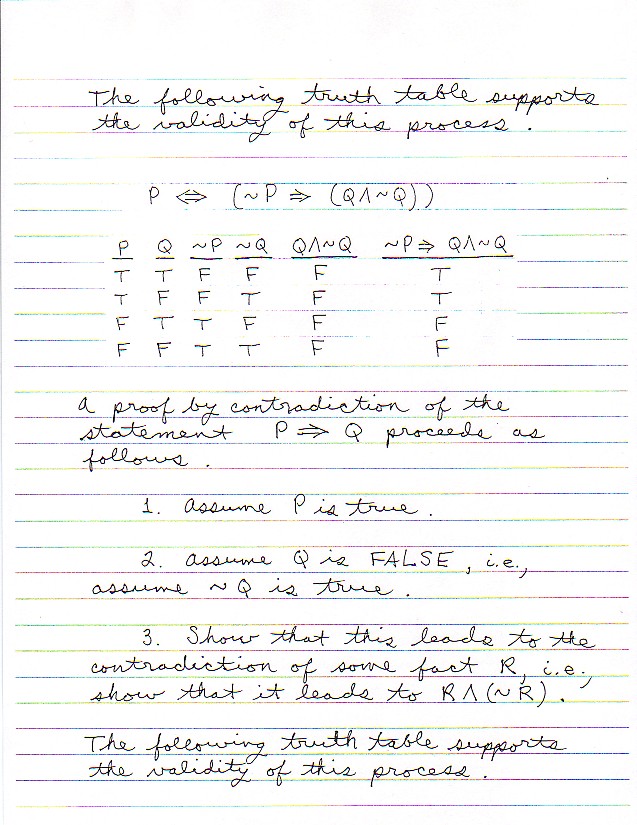 The following truth table supports
the validity of this process.
P ⇔ (~P ⇒ (Q∧~Q))
P Q ~P ~Q Q∧~Q ~P⇒ Q∧~Q
T T F F F T
T F F T F T
F T T F F F
F F T T F F
A proof by contradiction of the
statement P ⇒ Q proceeds as
follows.
1. Assume P is true.
2. Assume Q is FALSE, i.e.,
assume ~Q is true.
3. Show that this leads to the
contradiction of some fact R, i.e.,
show that it leads to R∧(~R).
The following truth table supports
the validity of this process.